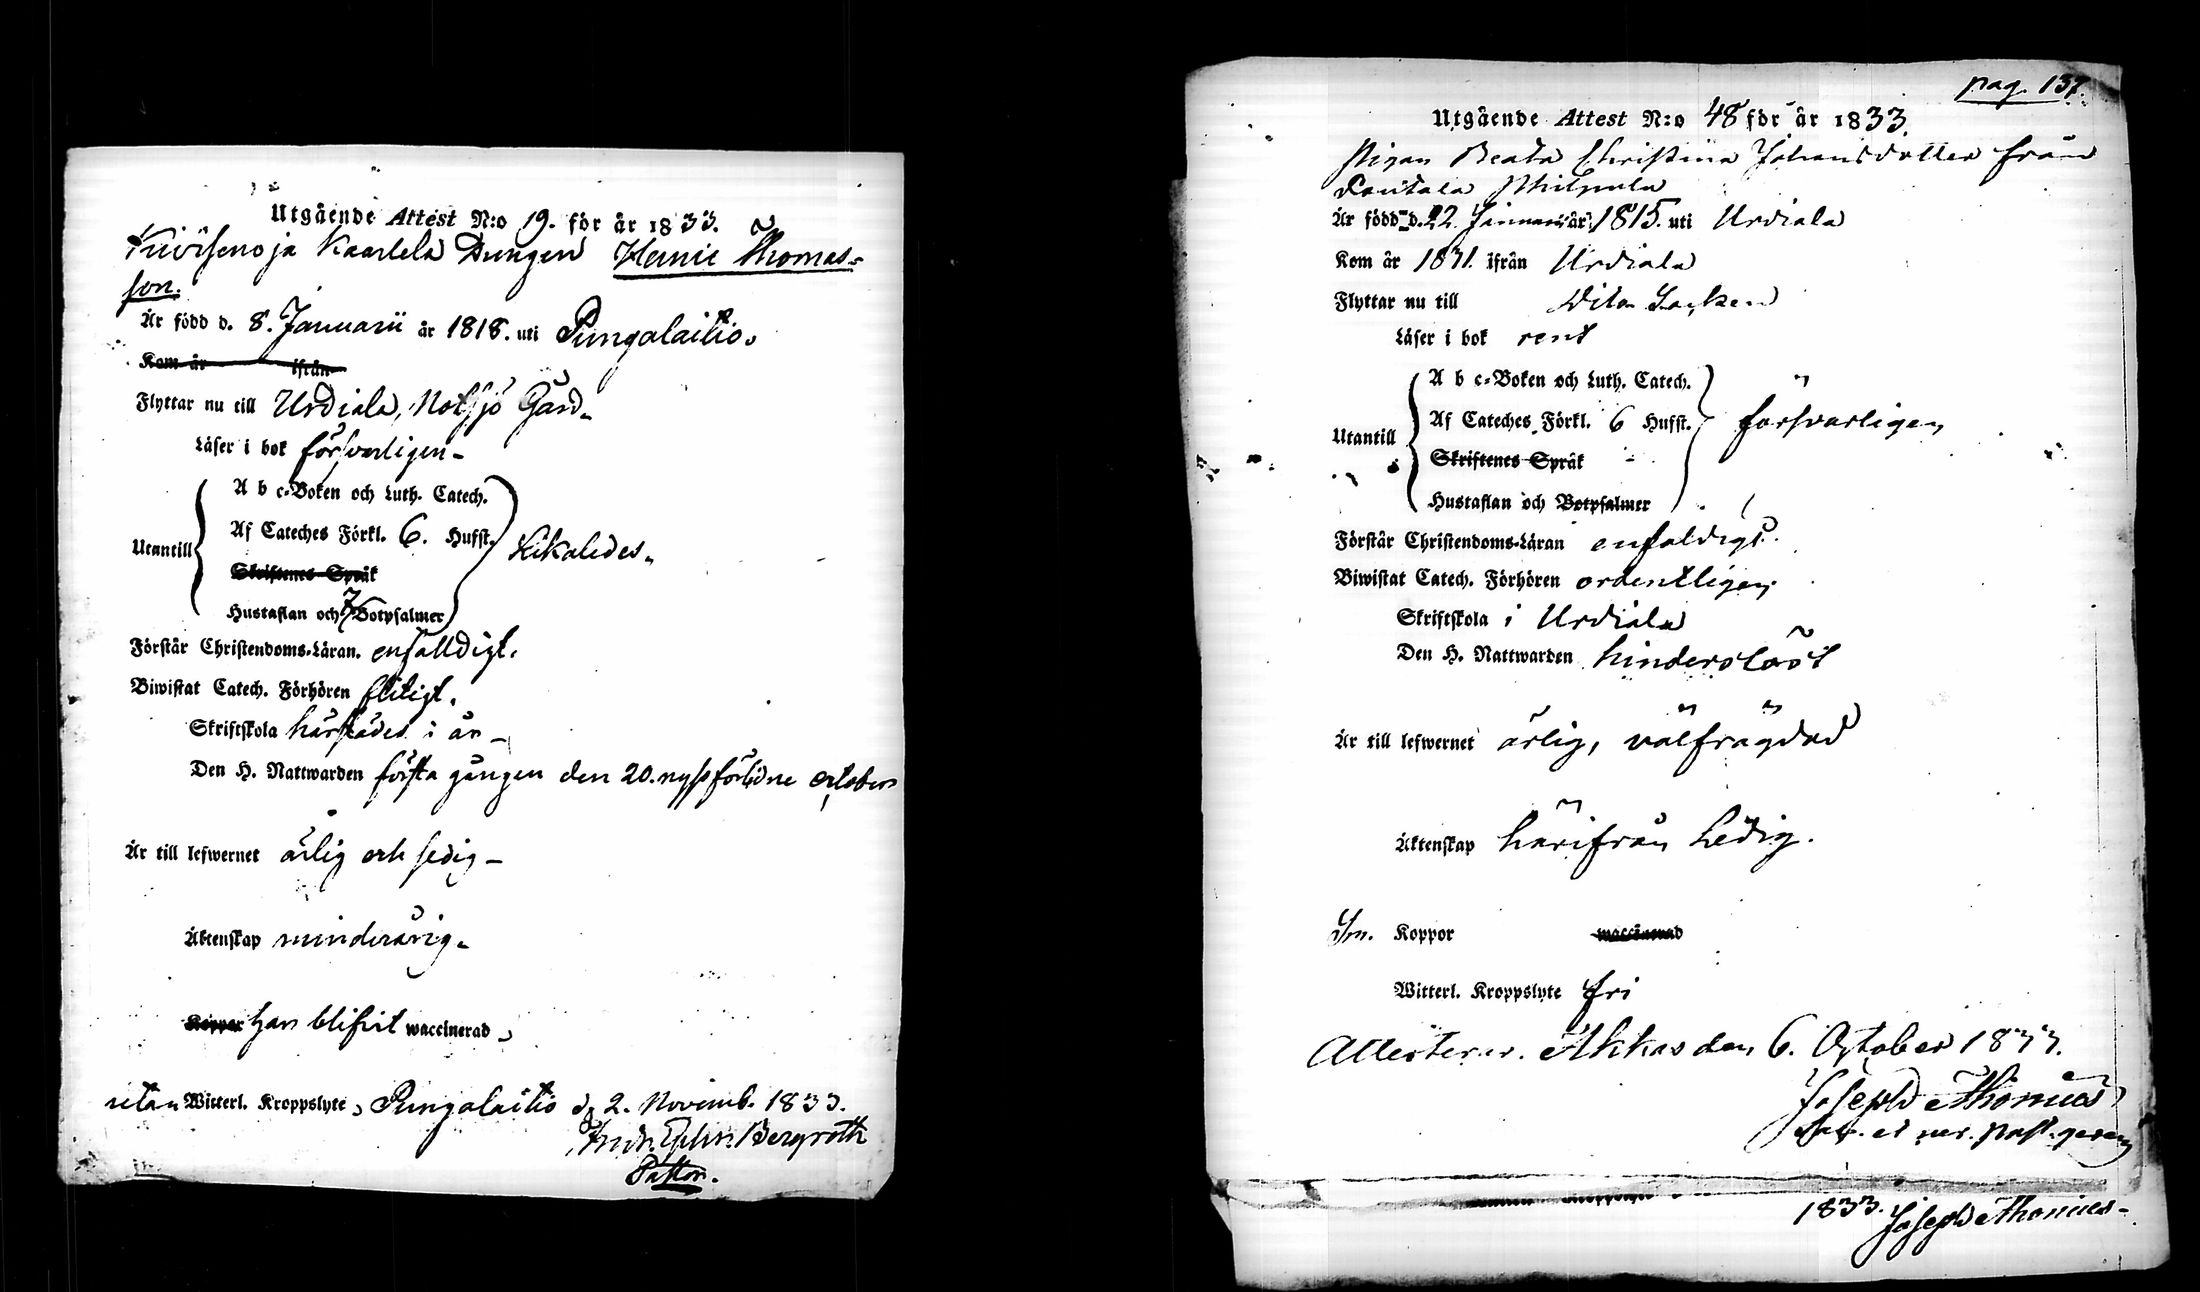 Utgående Attest N:o 19. för år 1833.
Kaartela Drengen Henric Thomas-
son.
Är född d. 8. Januarii år 1818. uti Pungalaitio.
Kom år ifrån
Flyttar nu till Urdiala, Notsjö Gård.
Läser i bok försvarligen
Utantill
A b c-Boken och Luth. Catech.
Af Cateches Förkl. 6. Hufst.
Likaledes.
Skriftenes Språk
Hustaflan och 7 Botpsalmer
Förstår Christendoms-Läran. enfalldigt.
Biwistat Catech. Förhören flitigt.
Skriftskola härstädes i år
Den H. Nattwarden första gången den 20. nyssförlidne october
Är till lefwernet ärlig och sedig
Äktenskap minderårig.
Koppor har blifvit waccinerad,
utan Witterl. Kroppslyte, Pungalaitio d. 2. Novemb. 1833.
Bergroth
Pastor.
pag. 137.
Utgående Attest N:o 48 för år 1833.
Pigan Beata Christina Johansdotter från
Är född d. 22 Januari år 1815. uti Urdiala
Kom år 1831. ifrån Urdiala
Flyttar nu till
Läser i bok rent
Utantill
A b c-Boken och Luth. Catech.
Af Cateches Förkl. 6 Hufst.
försvarligen
Skriftenes Språk
Hustaflan och Botpsalmer
Förstår Christendoms-Läran enfaldigt.
Biwistat Catech. Förhören ordentligen
Skriftskola i Urdiala
Den H. Nattwarden hinderslöst
Är till lefwernet ärlig, välfrägdad
Äktenskap härifrån ledig.
Koppor waccinerad
Witterl. Kroppslyte fri
Attesterar. Akkas den 6. October 1833.
Joseph Thomeus
1833. Joseph Thomeus